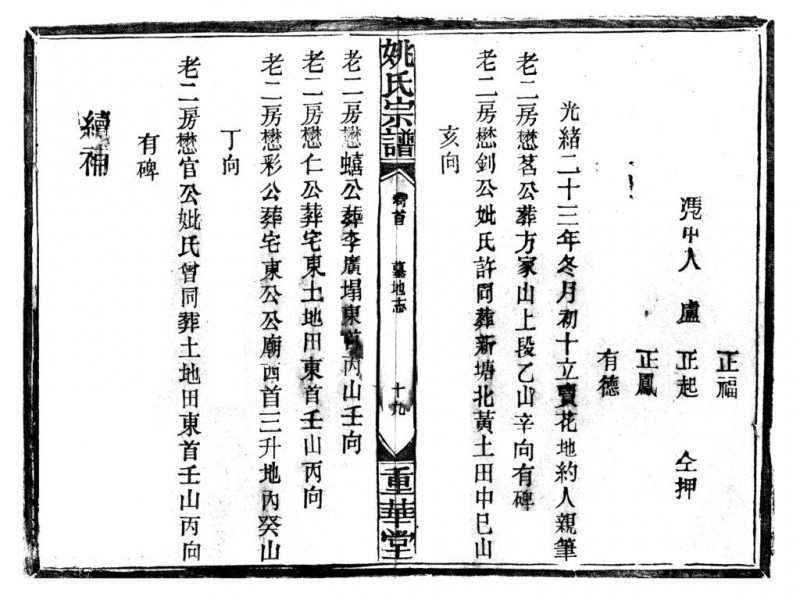 正福
憑中人 盧 正起 仝押
正鳳
有德
光緒二十三年冬月初十立賣花地約人親筆
老二房懋茗公葬方家山上段乙山辛向有碑
老二房懋釗公妣氏許同葬新塘北黃土田中巳山
亥向
姚氏宗譜 卷首 墓地志 十九 重華堂
老二房懋蟢公葬李廣塌東首丙山壬向
老二房懋仁公葬宅東土地田東首壬山丙向
老二房懋彩公葬宅東公公廟西首三升地內癸山
丁向
老二房懋官公妣氏曾同葬土地田東首壬山丙向
有碑
續補